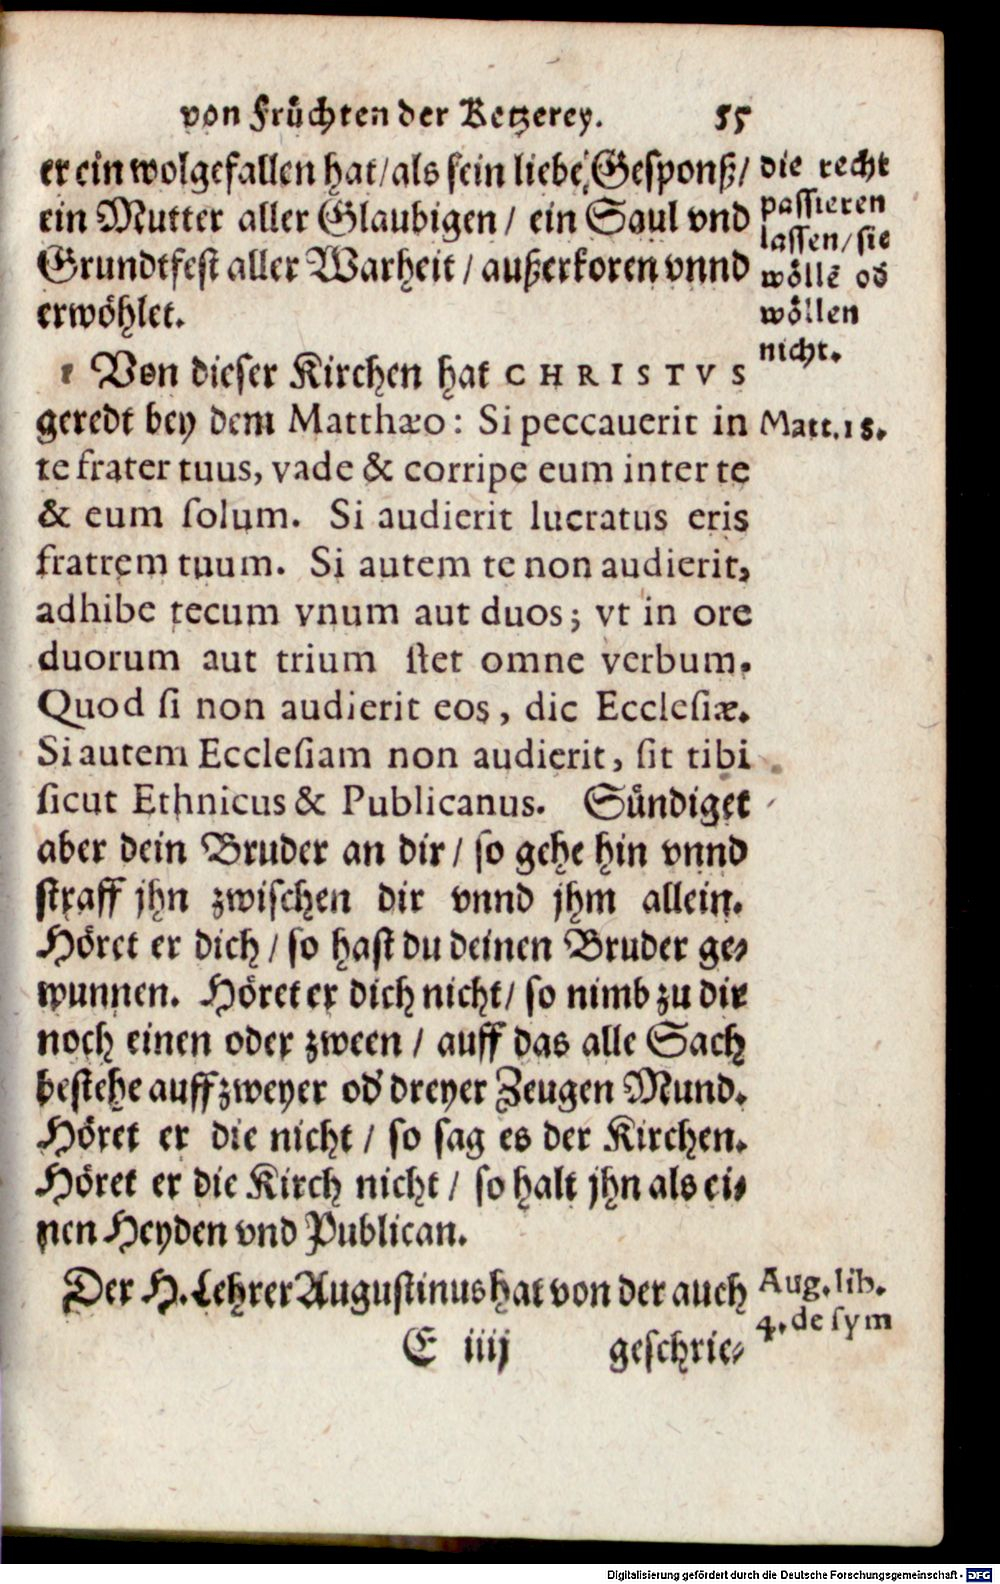 von Früchten der Ketzerey. 55
er ein wolgefallen hat/als sein liebe Gesponß/
ein Mutter aller Glaubigen/ ein Saul vnd
Grundtfest aller Warheit/ außerkoren vnnd
erwöhlet.
die recht
passieren
lassen/sie
wöllē od
wöllen
nicht.
Von dieser Kirchen hat CHRISTVS
geredt bey dem Matthæo: Si peccauerit in
Matt.18.
te frater tuus, vade & corripe eum inter te
& eum solum. Si audierit lucratus eris
fratrem tuum. Si autem te non audierit,
adhibe tecum vnum aut duos; vt in ore
duorum aut trium stet omne verbum.
Quod si non audierit eos, dic Ecclesiæ.
Si autem Ecclesiam non audierit, sit tibi
sicut Ethnicus & Publicanus. Sündiget
aber dein Bruder an dir/ so gehe hin vnnd
straff jhn zwischen dir vnnd jhm allein.
Höret er dich/ so hast du deinen Bruder ge-
wunnen. Höret er dich nicht/ so nimb zu dir
noch einen oder zween/ auff das alle Sach
bestehe auff zweyer od dreyer Zeugen Mund.
Höret er die nicht/ so sag es der Kirchen.
Höret er die Kirch nicht/ so halt jhn als ei-
nen Heyden vnd Publican.
Der H. Lehrer Augustinus hat von der auch
Aug. lib.
4. de sym
E iiij geschrie-
Digitalisierung gefördert durch die Deutsche Forschungsgemeinschaft - DFG